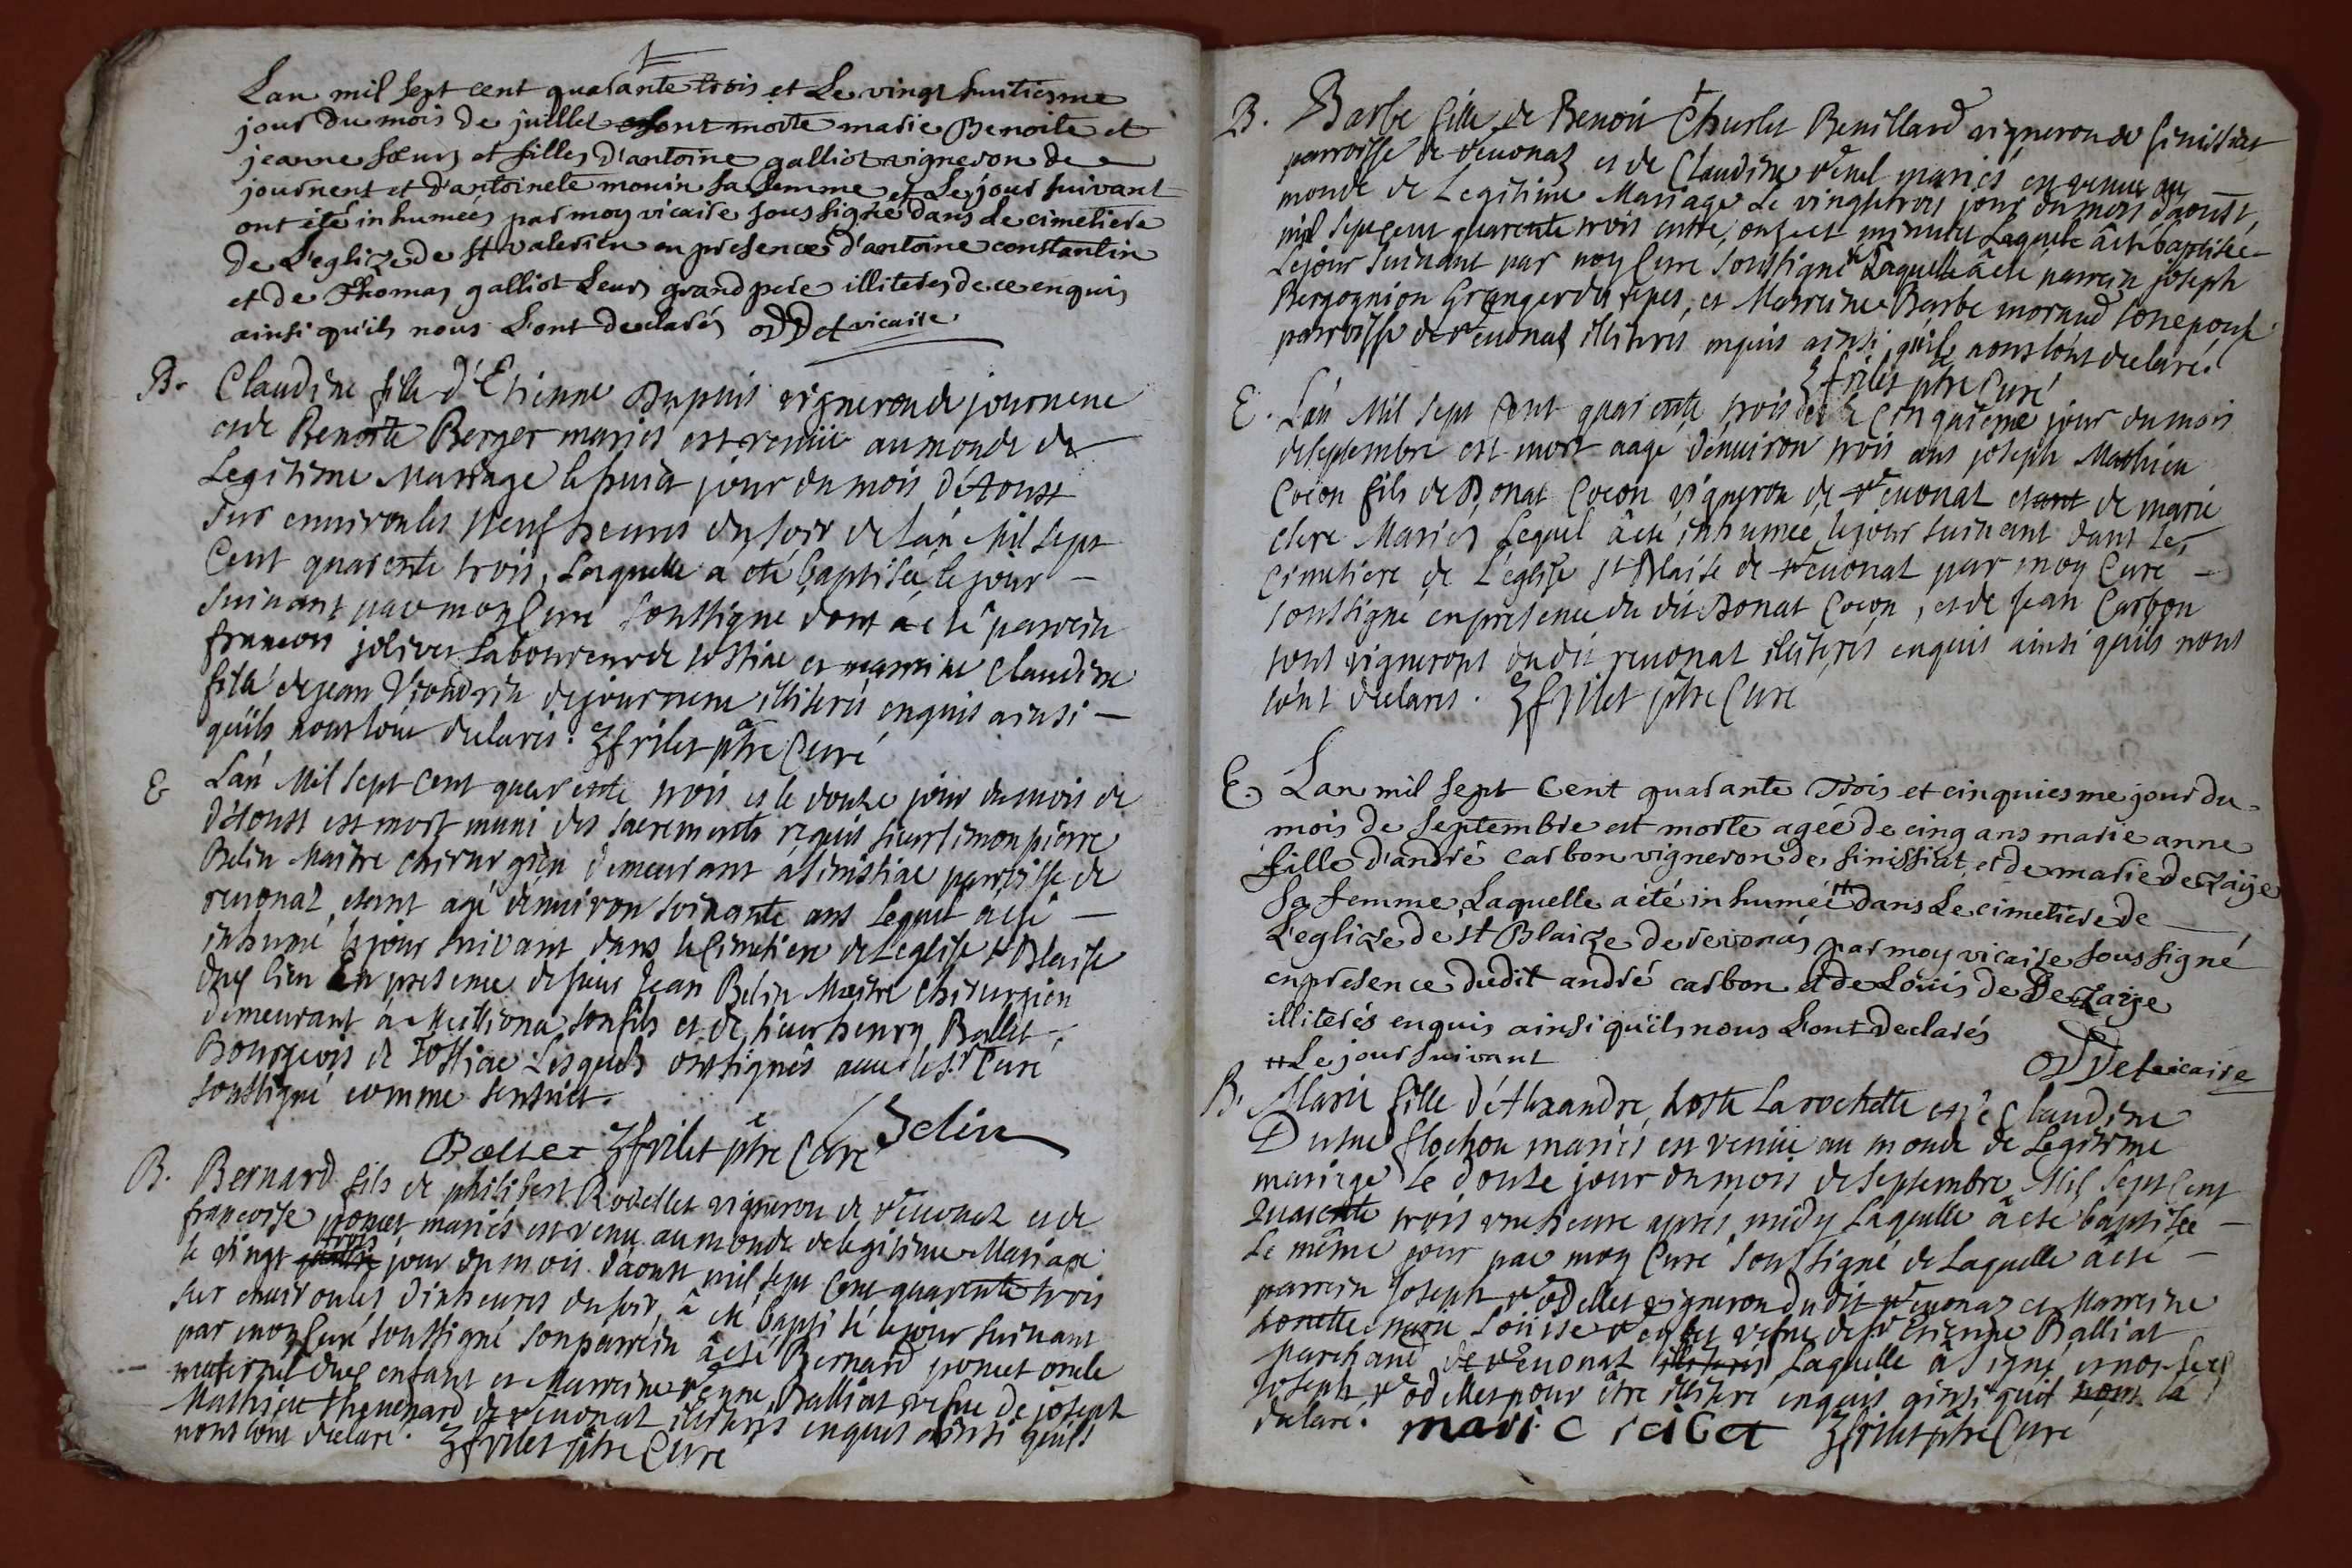 Lan mil sept cent quarante trois et Le vingt huitiesme
jour du mois de juillet sont morte marie Benoite et
jeanne sœurs et filles d'antoine galliot vigneron de
journent et d'antoinete monin sa femme et Le jour suivant
ont été inhumeés par moy vicaire sous signé dans Le cimetiere
de L'eglize de st valerien en presence d'antoine constantin
et de Thomas galliot Leurs grand pere illiterés de ce enquis
ainsi qu'ils nous L'ont declarés vicaire
B. Claudine fille d'Etienne Dupuis vigneron de journene
et de Benoite Berger mariés est venuë au monde de
Legitime Mariage le huict jour du mois d'Aoust
sur environ les neuf heures du soir de L'an Mil sept
Cent quarente trois, Laquelle a eté baptisée le jour
suivant par moy Curé soussigné dont a eté parrein
francois jolivet Laboureur de tossiac et marrine Claudine
fille de jean Viondrin de journene illiterés enquis ainsi
qu'ils nous l'ont declarés. frilet ptre Curé
E L'an Mil sept cent quarente trois et le douze jour du mois de
d'Aoust est mort muni des sacrements requis sieur simon pierre
Belin Maitre chirurgien demeurant a sinissiac parroisse de
revonaz etant agé d'environ soixante ans Lequel a eté
inhumé le jour suivant dans le Cimetiere de L'eglise st Blaise
dud lieu En presence de sieur Jean Belin Maitre Chirurgien
demeurant a son fils et de sieur henry Ballet
Bourgeois de Tossiac Lesquels ont signés avec le sr Curé
soussigné comme sensuict.
Ballet frilet ptre Curé Belin
B. Bernard fils de philibert Rodellet vigneron de revonaz et de
francoise poncet mariés est venu au monde de legitime Mariage
le vingt trois jour du mois d'aoust mil sept Cent quarente trois
sur environ les dix heures du soir, a eté baptisé le jour suivant
par moy Curé soussigné son parrein a eté Bernard poncet oncle
maternel dud enfant et Marreine Balliat vefve de joseph
Mathieu thevenard de revonat illiterés enquis ainsi quils
nous l'ont declaré. frilet ptre Curé
B. Barbe fille de Benoit Charles Benillard vigneron de sinissiat
parroisse de revonaz et de Claudine mariés est venue au
monde de Legitime Mariage Le vingt trois jour du mois d'aoust
mil sept cent quarente trois entre onze et minuict Laquele a eté baptisée
Le jour suivant par moy Curé soussigné Laquelle a eté parrein joseph
Bergognion Granger et Marreine Barbe morand son epouse
parroisse de revonaz illiterés enquis ainsi qu'ils nous l'ont declaré.
frilet ptre Curé
E. L'an Mil sept Cent quarente trois le Cinquième jour du mois
de septembre est mort aagé d'environ trois ans joseph Mathieu
Cocon fils de Donat Cocon vigneron de revonat et de marie
clere Mariés Lequel a eté inhumée le jour suivant dans le
Cimetiere de L'eglise st Blaise de revonat par moy Curé
soussigné en presence du dit Donat Cocon, et de jean Carbon
tous vignerons dudit revonat illiterés enquis ainsi quils nous
l'ont declarés. frilet ptre Curé
E. Lan mil sept Cent quarante Trois et cinquiesme jour du
mois de septembre est morte ageé de cinq ans marie anne
fille d'andré carbon vigneron de sinissiat, et de marie deczaije
sa femme, Laquelle a été inhumée # dans Le cimetiere de
L'eglize de st Blaize de revonás par moy vicaire sous signé
en presence dudit andré carbon et de Loüis de Deczaije
illiterés enquis ainsi qu'ils nous L'ont declarés
# Le jour suivant vicaire
B. Marie fille d'Alexandre hoste La rochette et de Claudine
flochon mariés est venüe au monde de Legitime
mariage Le douze jour du mois de septembre Mil sept Cent
Quarente trois une heure aprés midy Laquelle a eté baptisée
Le même jour par moy Curé soussigné de Laquelle a eté
parrein Joseph rodellet vigneron du dit revonaz et Marreine
honette marie Loüise vefve de sr Etienne Balliat
marchand de revonaz Laquelle a signé et non led
Joseph rodellet pour être illiteré enquis ainsi quil nous l'a
declaré. marie frilet ptre Curé